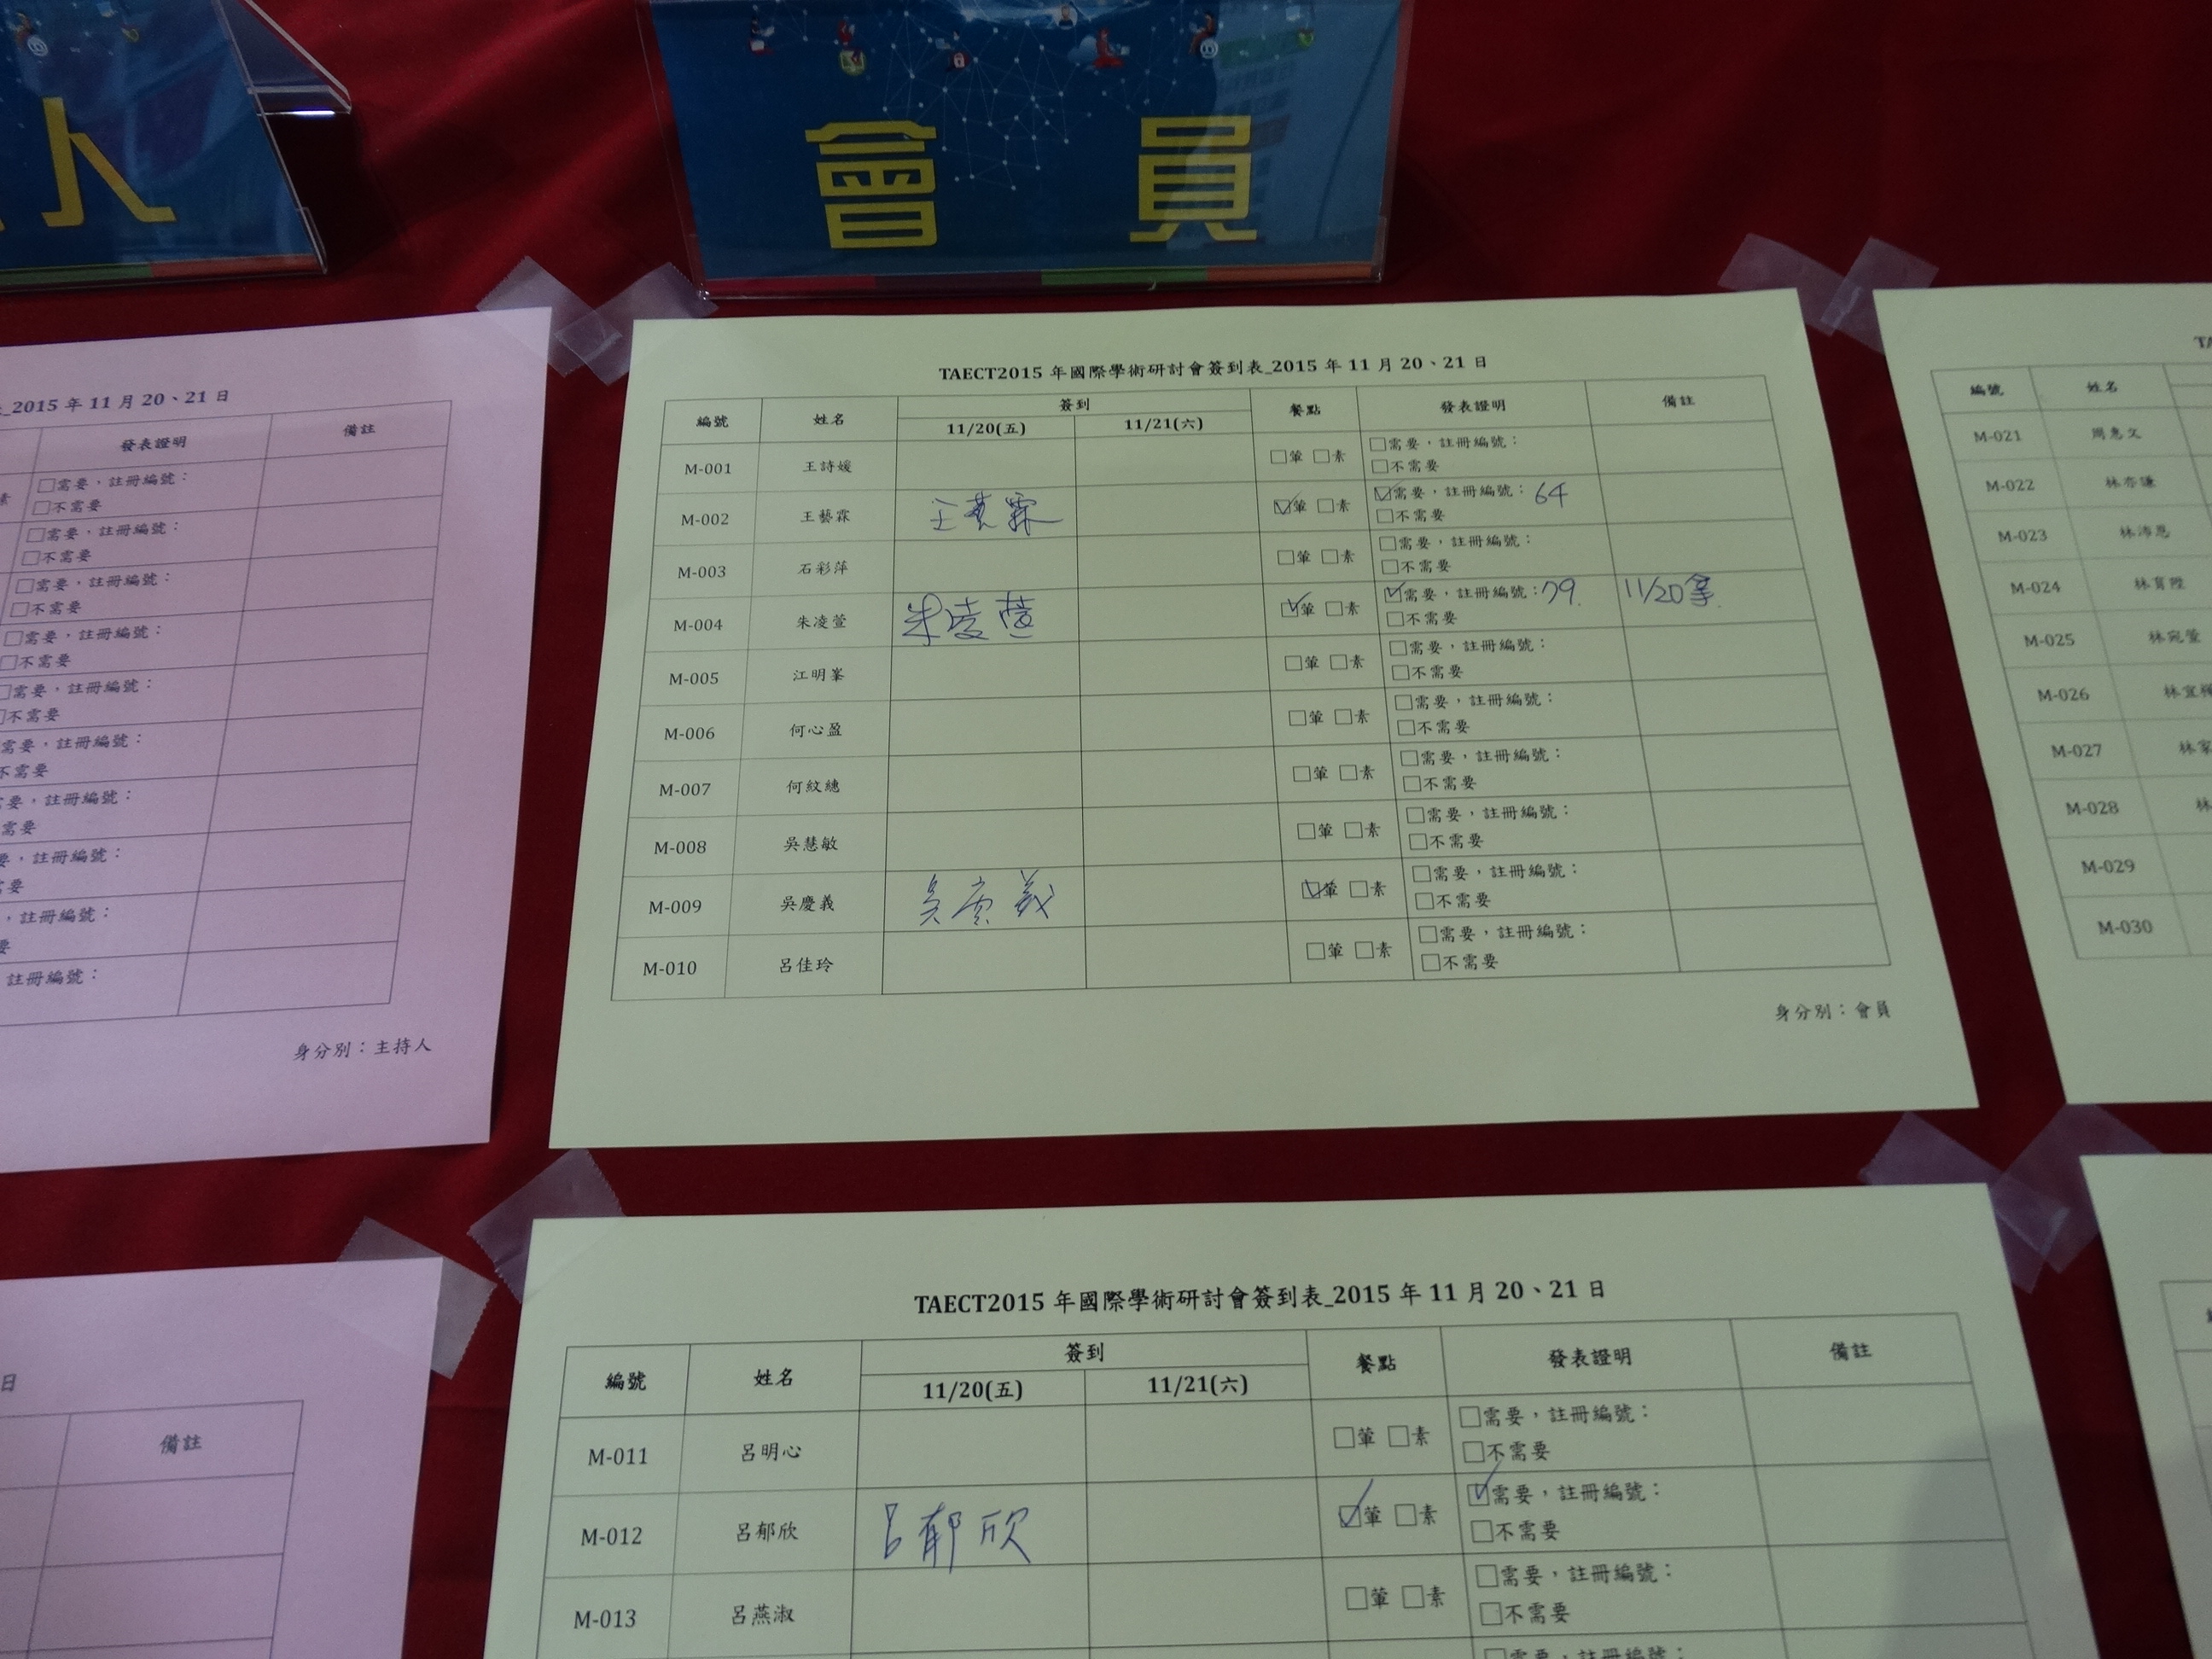 人
會員
_2015 年 11 月 20、21 日
發表證明 備註
素 □需要，註冊編號：
□不需要
□需要，註冊編號：
□不需要
□需要，註冊編號：
□不需要
□需要，註冊編號：
□不需要
□需要，註冊編號：
□不需要
需要，註冊編號：
不需要
要，註冊編號：
需要
要，註冊編號：
要
，註冊編號：
要
註冊編號：
身分別：主持人
TAECT2015 年國際學術研討會簽到表_2015 年 11 月 20、21 日
編號 姓名 簽到 餐點 發表證明 備註
11/20(五) 11/21(六)
M-001 王詩媛 □葷 □素 □需要，註冊編號：
□不需要
M-002 王藝霖 王藝霖 ☑葷 □素 ☑需要，註冊編號：64
□不需要
M-003 石彩萍 □葷 □素 □需要，註冊編號：
□不需要
M-004 朱凌萱 朱凌萱 ☑葷 □素 ☑需要，註冊編號：79. 11/20拿
□不需要
M-005 江明峯 □葷 □素 □需要，註冊編號：
□不需要
M-006 何心盈 □葷 □素 □需要，註冊編號：
□不需要
M-007 何紋繐 □葷 □素 □需要，註冊編號：
□不需要
M-008 吳慧敏 □葷 □素 □需要，註冊編號：
□不需要
M-009 吳慶義 吳慶義 ☑葷 □素 □需要，註冊編號：
□不需要
M-010 呂佳玲 □葷 □素 □需要，註冊編號：
□不需要
身分別：會員
編號 姓名
M-021 周惠文
M-022 林亦謙
M-023 林沛恩
M-024 林育陞
M-025 林宛瑩
M-026 林宜
M-027 林家
M-028 林
M-029
M-030
日
備註
TAECT2015 年國際學術研討會簽到表_2015 年 11 月 20、21 日
編號 姓名 簽到 餐點 發表證明 備註
11/20(五) 11/21(六)
M-011 呂明心 □葷 □素 □需要，註冊編號：
□不需要
M-012 呂郁欣 呂郁欣 ☑葷 □素 ☑需要，註冊編號：
□不需要
M-013 呂燕淑 □葷 □素 □需要，註冊編號：
□不需要
□需要，註冊編號：